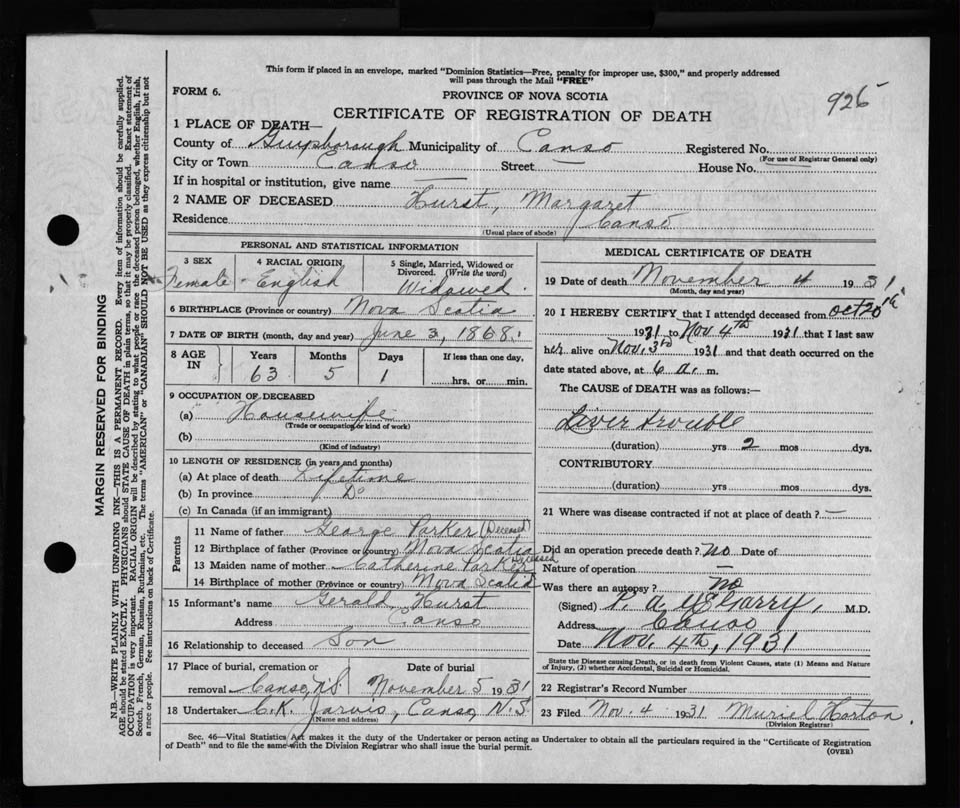 This form if placed in an envelope, marked "Dominion Statistics—Free, penalty for improper use, $300," and properly addressed
will pass through the Mail "FREE"
FORM 6.
PROVINCE OF NOVA SCOTIA
925
CERTIFICATE OF REGISTRATION OF DEATH
1 PLACE OF DEATH—
County of Guysborough Municipality of Canso Registered No.
(For use of Registrar General only)
City or Town Canso Street — House No. —
If in hospital or institution, give name —
2 NAME OF DECEASED Hurst, Margaret
Residence Canso
(Usual place of abode)
MARGIN RESERVED FOR BINDING
N.B.—WRITE PLAINLY WITH UNFADING INK—THIS IS A PERMANENT RECORD. Every item of information should be carefully supplied.
AGE should be stated EXACTLY. PHYSICIANS should STATE CAUSE OF DEATH in plain terms, so that it may be properly classified. Exact statement of
OCCUPATION is very important. RACIAL ORIGIN will be described by stating to what people or race the deceased person belonged, whether English, Irish,
Scotch, French, German, Russian, Ruthenian, etc. The terms "AMERICAN" or "CANADIAN" SHOULD NOT BE USED as they express citizenship but not
a race or people. Fee instructions on back of Certificate.
PERSONAL AND STATISTICAL INFORMATION
3 SEX
Female
4 RACIAL ORIGIN
English
5 Single, Married, Widowed or
Divorced. (Write the word)
Widowed
6 BIRTHPLACE (Province or country) Nova Scotia
7 DATE OF BIRTH (month, day and year) June 3, 1868
8 AGE IN Years Months Days If less than one day,
63 5 1 hrs. or min.
9 OCCUPATION OF DECEASED
(a) Housewife
(Trade or occupation or kind of work)
(b)
(Kind of industry)
10 LENGTH OF RESIDENCE (in years and months)
(a) At place of death Lifetime
(b) In province Do
(c) In Canada (if an immigrant)
Parents
11 Name of father George Parker (Deceased)
12 Birthplace of father (Province or country) Nova Scotia
13 Maiden name of mother Catherine Parker Deceased
14 Birthplace of mother (Province or country) Nova Scotia
15 Informant's name Gerald Hurst
Address Canso
16 Relationship to deceased Son
17 Place of burial, cremation or Date of burial
removal Canso, N.S. November 5 1931
18 Undertaker C.K. Jarvis, Canso, N.S.
(Name and address)
MEDICAL CERTIFICATE OF DEATH
19 Date of death November 4 1931
(Month, day and year)
20 I HEREBY CERTIFY that I attended deceased from Oct 20th
1931 to Nov. 4th 1931 that I last saw
her alive on Nov. 3rd 1931 and that death occurred on the
date stated above, at 6 a. m.
The CAUSE of DEATH was as follows:—
Liver trouble
(duration) yrs 2 mos dys.
CONTRIBUTORY
(duration) yrs mos dys.
21 Where was disease contracted if not at place of death? —
Did an operation precede death? No Date of
Nature of operation —
Was there an autopsy? no
(Signed) P. A. M.D.
Address Canso
Date Nov. 4th, 1931
State the Disease causing Death, or in death from Violent Causes, state (1) Means and Nature
of Injury, (2) whether Accidental, Suicidal or Homicidal.
22 Registrar's Record Number
23 Filed Nov. 4 1931 Muriel Horton
(Division Registrar)
Sec. 46—Vital Statistics Act makes it the duty of the Undertaker or person acting as Undertaker to obtain all the particulars required in the "Certificate of Registration
of Death" and to file the same with the Division Registrar who shall issue the burial permit.
(OVER)